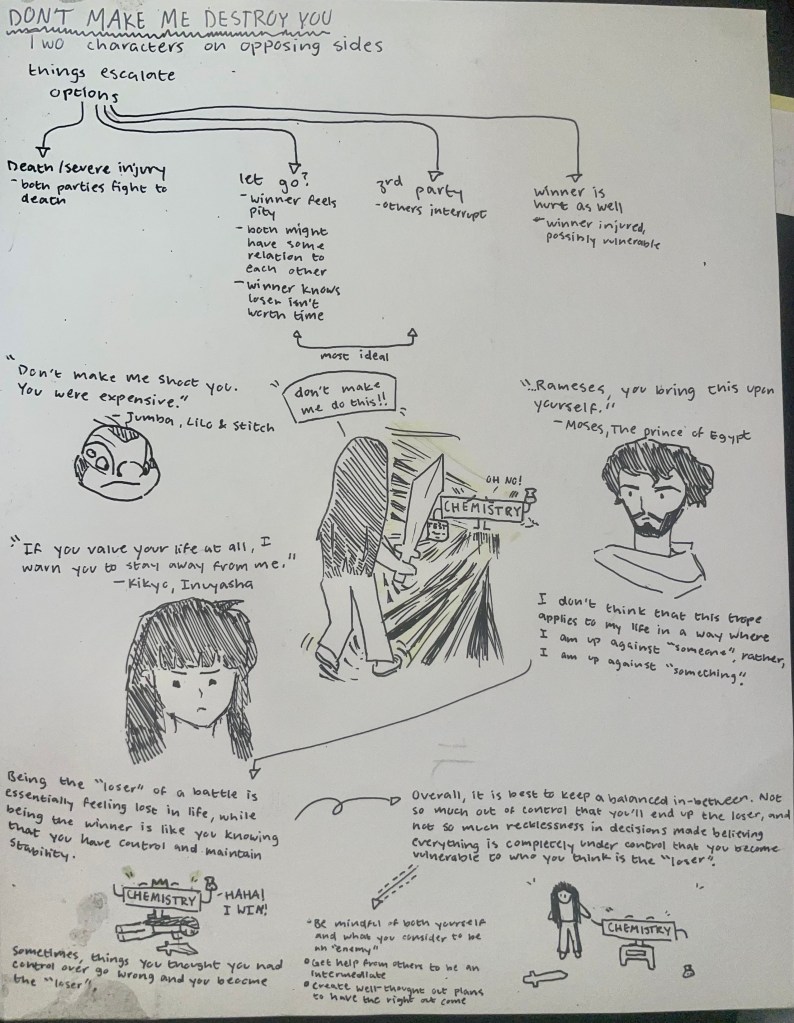 DON'T MAKE ME DESTROY YOU
Two characters on opposing sides
things escalate
options
Death/severe injury
- both parties fight to
death
let go?
- winner feels
pity
- both might
have some
relation to
each other
- winner knows
loser isn't
worth time
3rd party
- others interrupt
winner is
hurt as well
- winner injured,
possibly vulnerable
most ideal
"Don't make me shoot you.
You were expensive."
- Jumba, Lilo & Stitch
don't make
me do this!!
"...Rameses, you bring this upon
yourself."
- Moses, The prince of Egypt
OH NO!
CHEMISTRY
"If you value your life at all, I
warn you to stay away from me."
- Kikyo, Inuyasha
I don't think that this trope
applies to my life in a way where
I am up against "someone", rather,
I am up against "something".
Being the "loser" of a battle is
essentially feeling lost in life, while
being the winner is like you knowing
that you have control and maintain
stability.
CHEMISTRY
HAHA!
I WIN!
Sometimes, things you thought you had
control over go wrong and you become
the "loser".
Overall, it is best to keep a balanced in-between. Not
so much out of control that you'll end up the loser, and
not so much recklessness in decisions made believing
everything is completely under control that you become
vulnerable to who you think is the "loser".
• Be mindful of both yourself
and what you consider to be
an "enemy"
• Get help from others to be an
intermediate
• Create well thought out plans
to have the right out come
CHEMISTRY